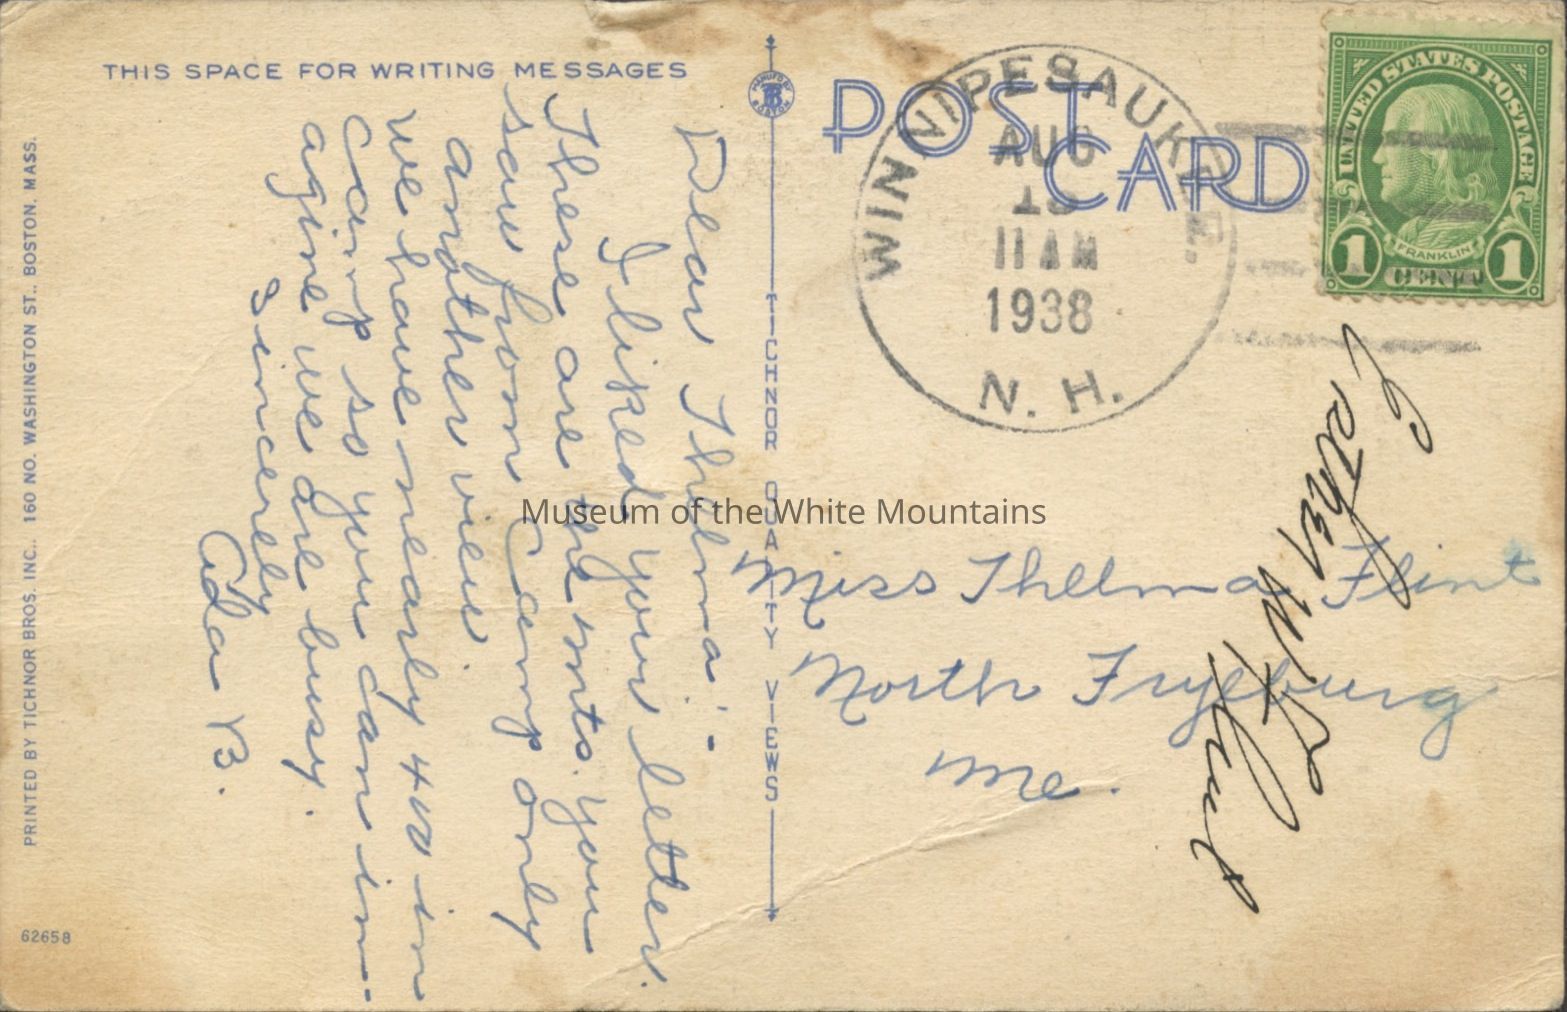 THIS SPACE FOR WRITING MESSAGES
Dear Thelma:-
I liked your letter.
These are the mts. you
saw from Camp only
another view.
We have nearly 400 in
camp so you can im-
agine we are busy.
Sincerely
Ada B.
PRINTED BY TICHNOR BROS. INC., 160 NO. WASHINGTON ST., BOSTON, MASS.
62658
MANUF'D BY
TB
BOSTON
TICHNOR QUALITY VIEWS
POST CARD
WINNIPESAUKEE.
AUG
11 AM
1938
N. H.
UNITED STATES POSTAGE
FRANKLIN
1 CENT 1
Miss Thelma Flint
North Fryeburg
Me.
Flint
Museum of the White Mountains